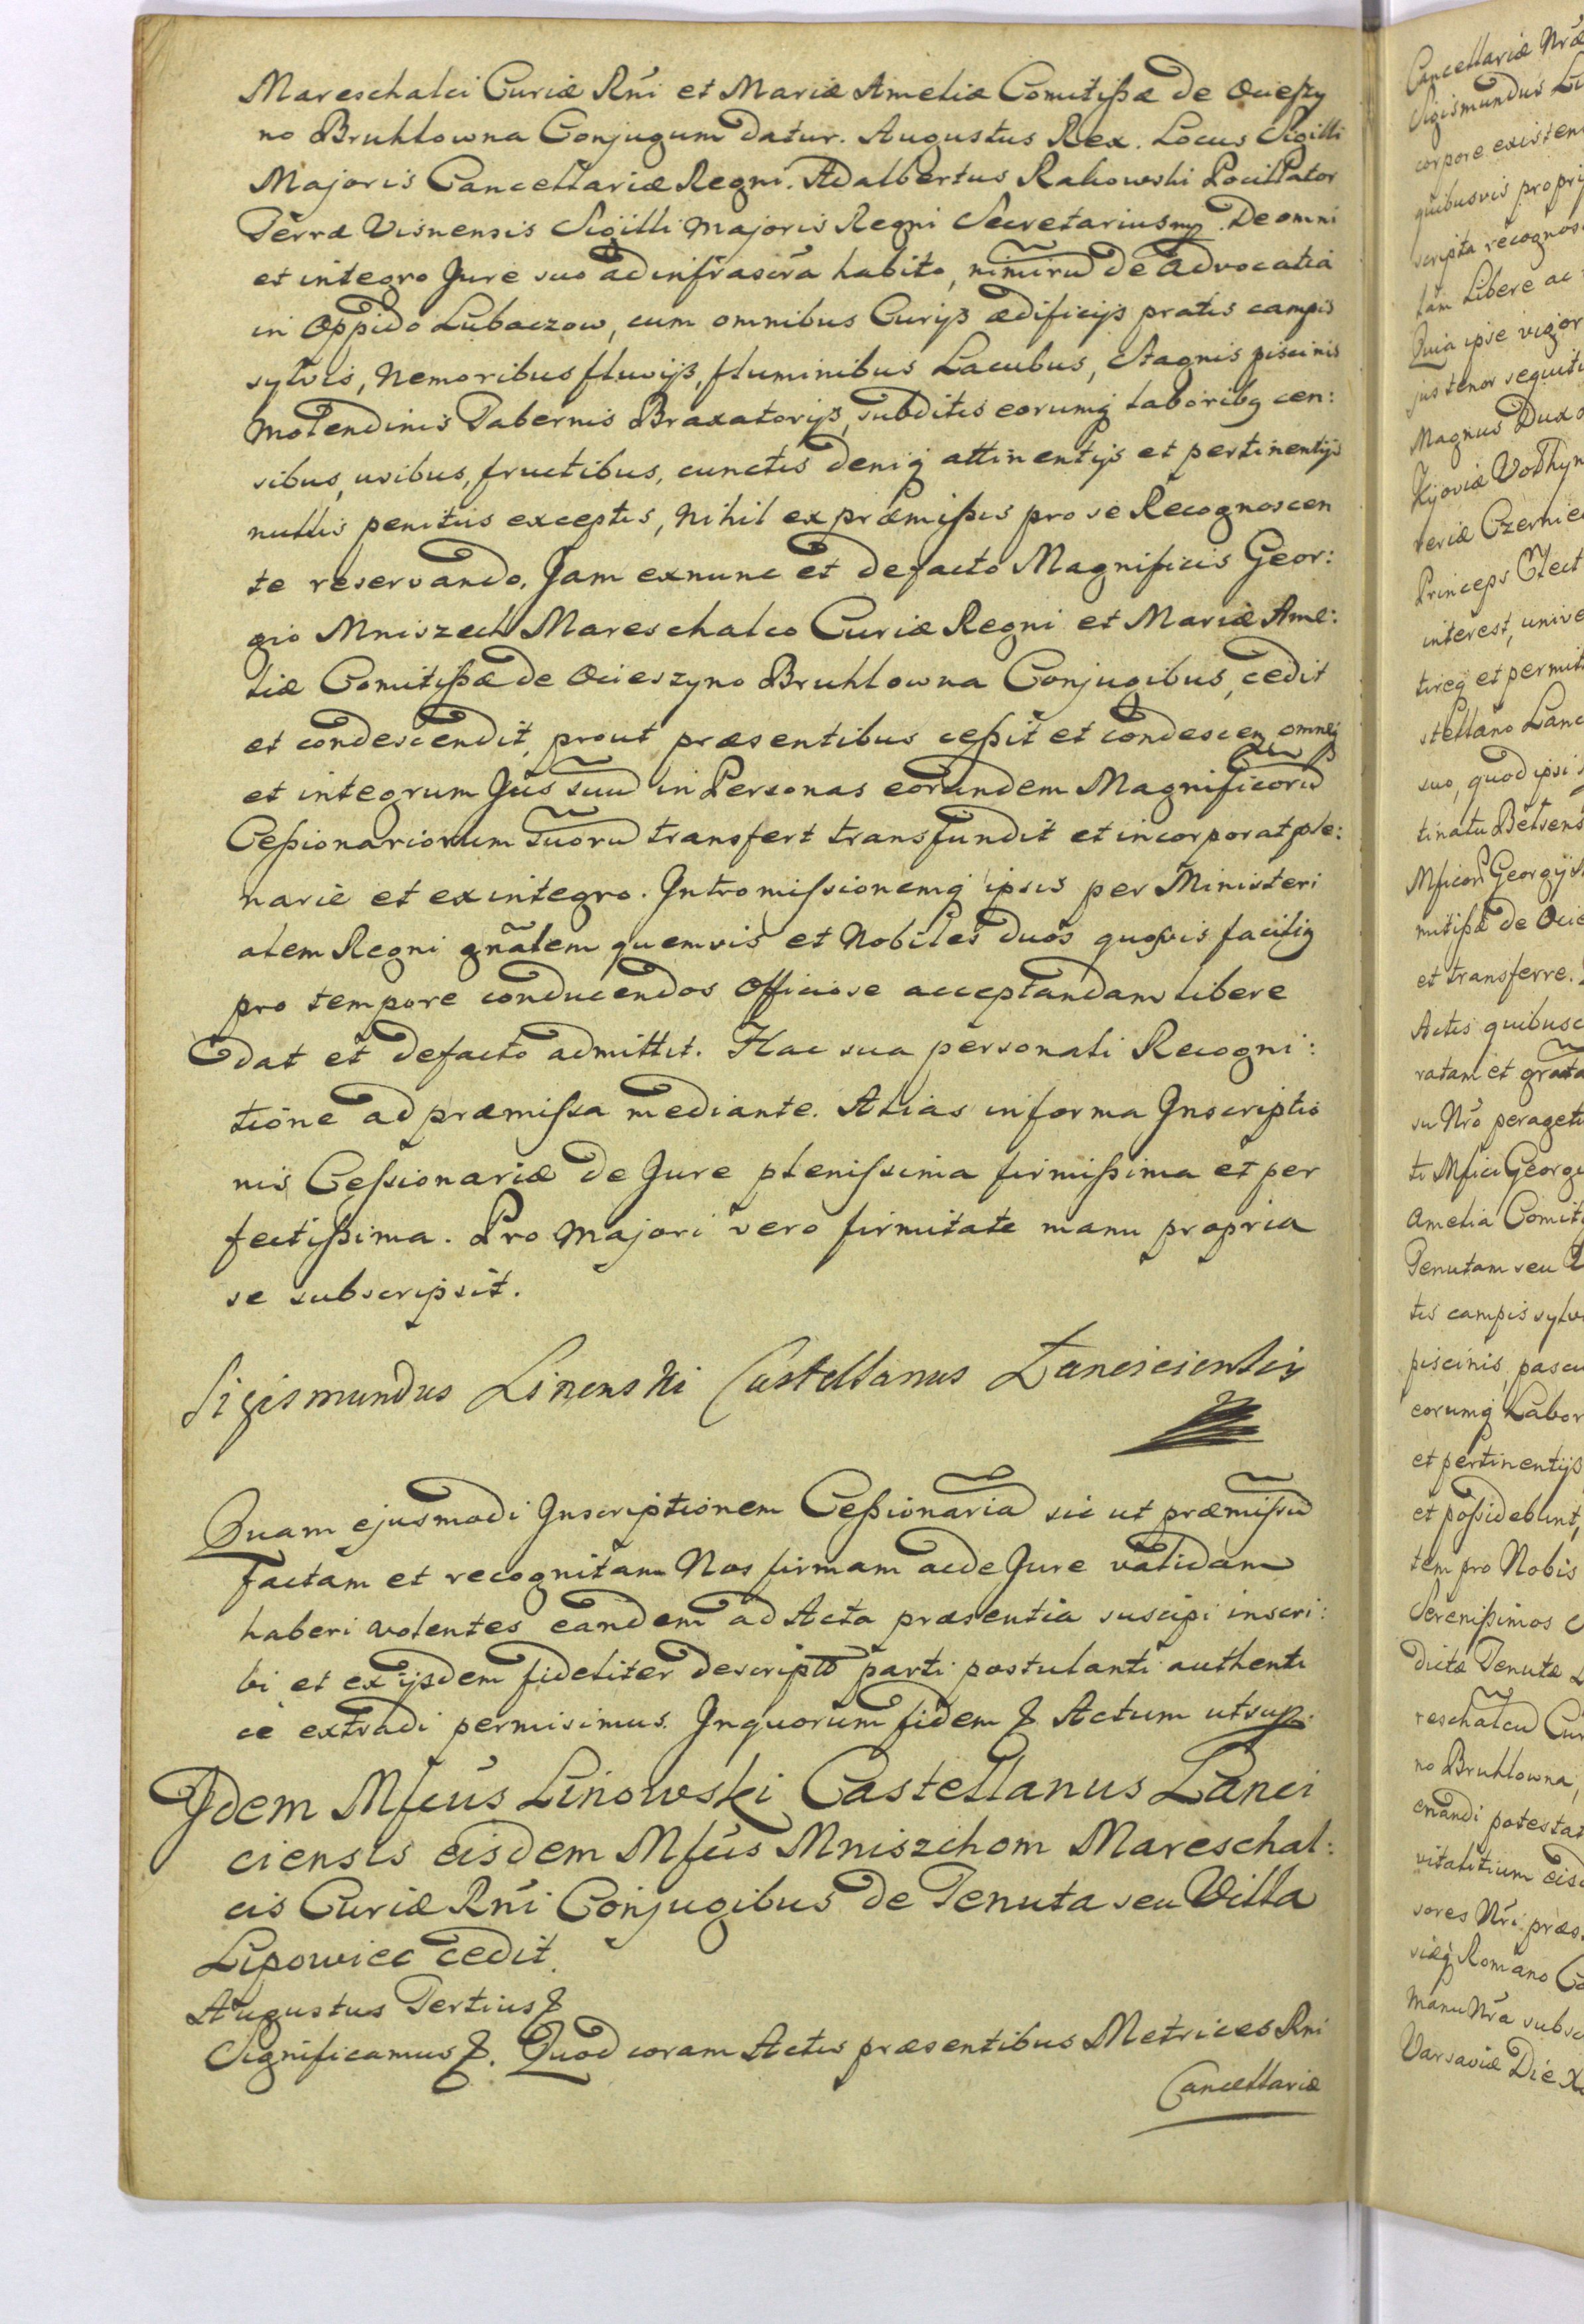 Mareschalci Curiæ Rńi et Mariæ Ameliæ Comitißæ de Ocieszy
no Bruhlowna Conjugum datur. Augustus Rex. Locus Sigilli
Majoris Cancellariæ Regni. Adalbertus Rakowski Pocillator
Terræ Visnensis Sigilli Majoris Regni Secretarius mp. De omni
et integro Jure suo ad infrascr̃a habito, nimirũ de Advocatia
in Oppido Lubaczow, cum omnibus Curijs ædificijs pratis campis
sylvis, Nemoribus fluvijs, fluminibus Lacubus, Stagnis piscinis
Molendinis Tabernis Braxatorijs, subditis eorumq laboribq cen:
sibus, usibus, fructibus, cunctis deniq attinentijs et pertinentijs
nullis penitus exceptis, Nihil ex præmißis pro se Recognoscen
te reservando. Jam exnunc et defacto Magnificis Geor:
gio Mniszech Mareschalco Curiæ Regni et Mariæ Ame:
liæ Comitißæ de Ocieszyno Bruhlowna Conjugibus, cedit
et condescendit, prout præsentibus ceßit et condescen, omneq
et integrum Jus suũ in Personas eorundem Magnificorũ
Ceßionariorum suorũ transfert transfundit et incorporat ple:
narie et ex integro. Intromissionemq ipsis per Ministeri
alem Regni gñalem quemvis et Nobiles duos quosvis facilig
pro tempore conducendos Officiose acceptandam libere
dat et defacto admittit. Hac sua personali Recogni:
tione ad præmissa mediante. Alias in forma Inscriptio
nis Cessionariæ de Jure plenissima firmißima et per
fectißima. Pro Majori vero firmitate manu propria
se subscripsit.
Sigismundus Linenski Castellanus Lanciciensis
Quam ejusmodi Inscriptionem Ceßionariã sic ut præmissũ
factam et recognitam Nos firmam ac de Jure validam
haberi volentes eandem ad Acta præsentia suscipi inscri:
bi et ex ijsdem fideliter descriptõ parti postulanti authenti
ce extradi permisimus. In quorum fidem & Actum ut sup.
Idem Mfcus Linowski Castellanus Lanci
ciensis eisdem Mfcis Mniszchom Mareschal:
cis Curiæ Rńi Conjugibus de Tenuta seu Villa
Lipowiec cedit.
Augustus Tertius &
Significamus &. Quod coram Actis præsentibus Metrices Rni
Cancellariæ
Cancellariæ Nræ
Sigismundus Li
corpore existen
quibusvis proprij
scripta recognos
tam Libere ac
Quia ipse vigor
jus tenor sequit
Magnus Dux
Kijoviæ Volhyn
veriæ Czernie
Princeps Elect
interest, unive
tireq et permit
stellano Lanc
suo, quod ipsi
tinatu Belsens
Mficor Georgij
mitißæ de Ocie
et transferre.
Actis quibusc
ratam et grata
su Nro peraget
ti Mfici Georgi
Amelia Comit
Tenutam seu
tis campis sylv
piscinis, pascu
eorumq Labor
et pertinentijs
et possidebunt,
tem pro Nobis
Serenißimos
dictæ Tenutæ
reschalcũ Cur
no Bruhlowna,
enandi potestat
vitalitium eisd
sores Nri præs
siæq Romano Ca
Manu Nra subsc
Varsaviæ Die X